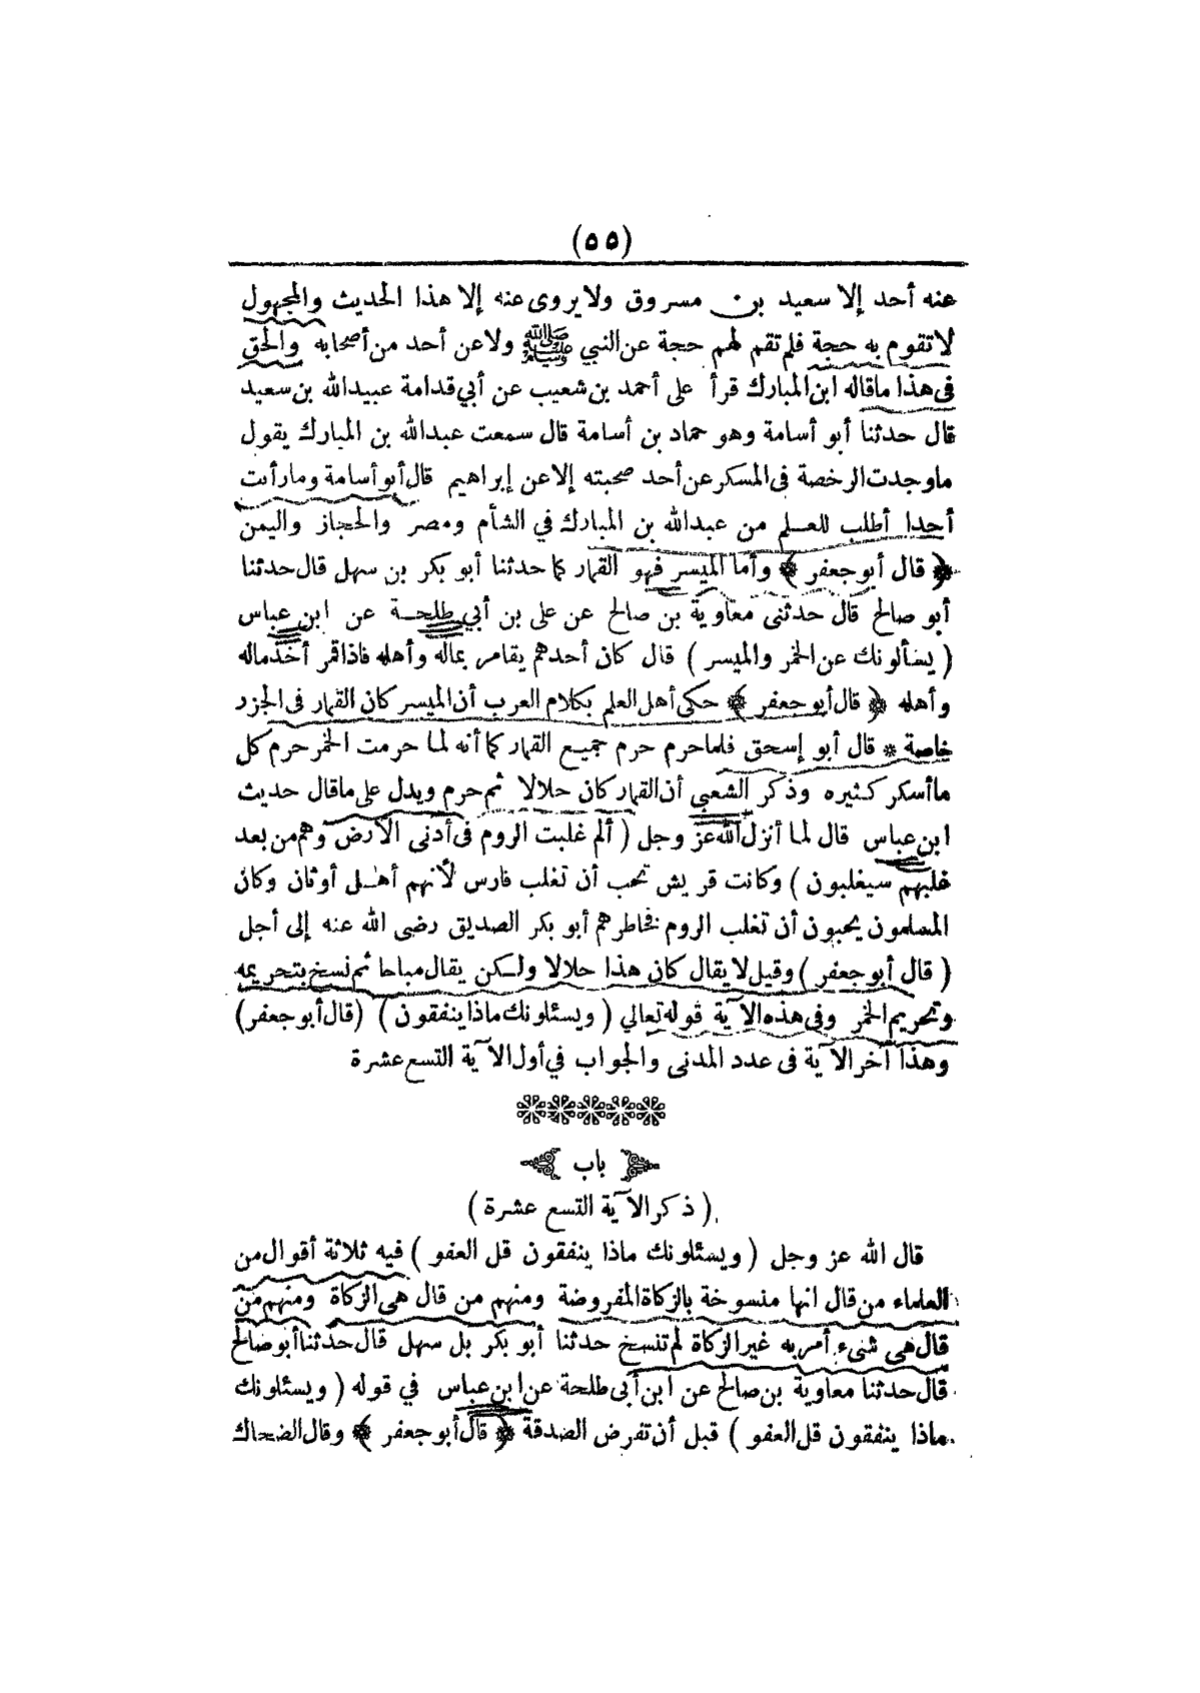 (٥٥)
عنه أحد إلا سعيد بن مسروق ولا يروى عنه إلا هذا الحديث والمجهول
لا تقوم به حجة فلم تقم لهم حجة عن النبي ﷺ ولا عن أحد من أصحابه والحق
فى هذا ماقاله ابن المبارك قرأ على أحمد بن شعيب عن أبي قدامة عبيدالله بن سعيد
قال حدثنا أبو أسامة وهو حماد بن أسامة قال سمعت عبدالله بن المبارك يقول
ماوجدت الرخصة فى المسكر عن أحد صحبته إلا عن إبراهيم قال أبو أسامة وما رأيت
أحدا أطلب للعلم من عبدالله بن المبارك في الشأم ومصر والحجاز واليمن
﴿ قال أبو جعفر ﴾ وأما الميسر فهو القمار كما حدثنا أبو بكر بن سهل قال حدثنا
أبو صالح قال حدثنى معاوية بن صالح عن على بن أبي طلحة عن ابن عباس
( يسألونك عن الخمر والميسر ) قال كان أحدهم يقامر بماله وأهله فاذا قمر أخذ ماله
وأهله ﴿ قال أبو جعفر ﴾ حكى أهل العلم بكلام العرب أن الميسر كان القمار فى الجزر
خاصة * قال أبو إسحق فلما حرم حرم جميع القمار كما أنه لما حرمت الخمر حرم كل
ماأسكر كثيره وذكر الشعبي أن القمار كان حلالا ثم حرم ويدل على ماقال حديث
ابن عباس قال لما أنزل الله عز وجل ( ألم غلبت الروم فى أدنى الأرض وهم من بعد
غلبهم سيغلبون ) وكانت قريش تحب أن تغلب فارس لأنهم أهل أوثان وكان
المسلمون يحبون أن تغلب الروم فخاطرهم أبو بكر الصديق رضى الله عنه إلى أجل
( قال أبو جعفر ) وقيل لا يقال كان هذا حلالا ولكن يقال مباحا ثم نسخ بتحريمه
وتحريم الخمر وفى هذه الآية قوله تعالي ( ويسئلونك ماذا ينفقون ) (قال أبو جعفر)
وهذا آخر الآية فى عدد المدنى والجواب في أول الآية التسع عشرة
باب
( ذكر الآية التسع عشرة )
قال الله عز وجل ( ويسئلونك ماذا ينفقون قل العفو ) فيه ثلاثة أقوال من
العلماء من قال انها منسوخة بالزكاة المفروضة ومنهم من قال هى الزكاة ومنهم من
قال هي شىء أمر به غير الزكاة لم تنسخ حدثنا أبو بكر بل سهل قال حدثنا أبو صالح
قال حدثنا معاوية بن صالح عن ابن أبى طلحة عن ابن عباس في قوله ( ويسئلونك
ماذا ينفقون قل العفو ) قبل أن تفرض الصدقة ﴿ قال أبو جعفر ﴾ وقال الضحاك